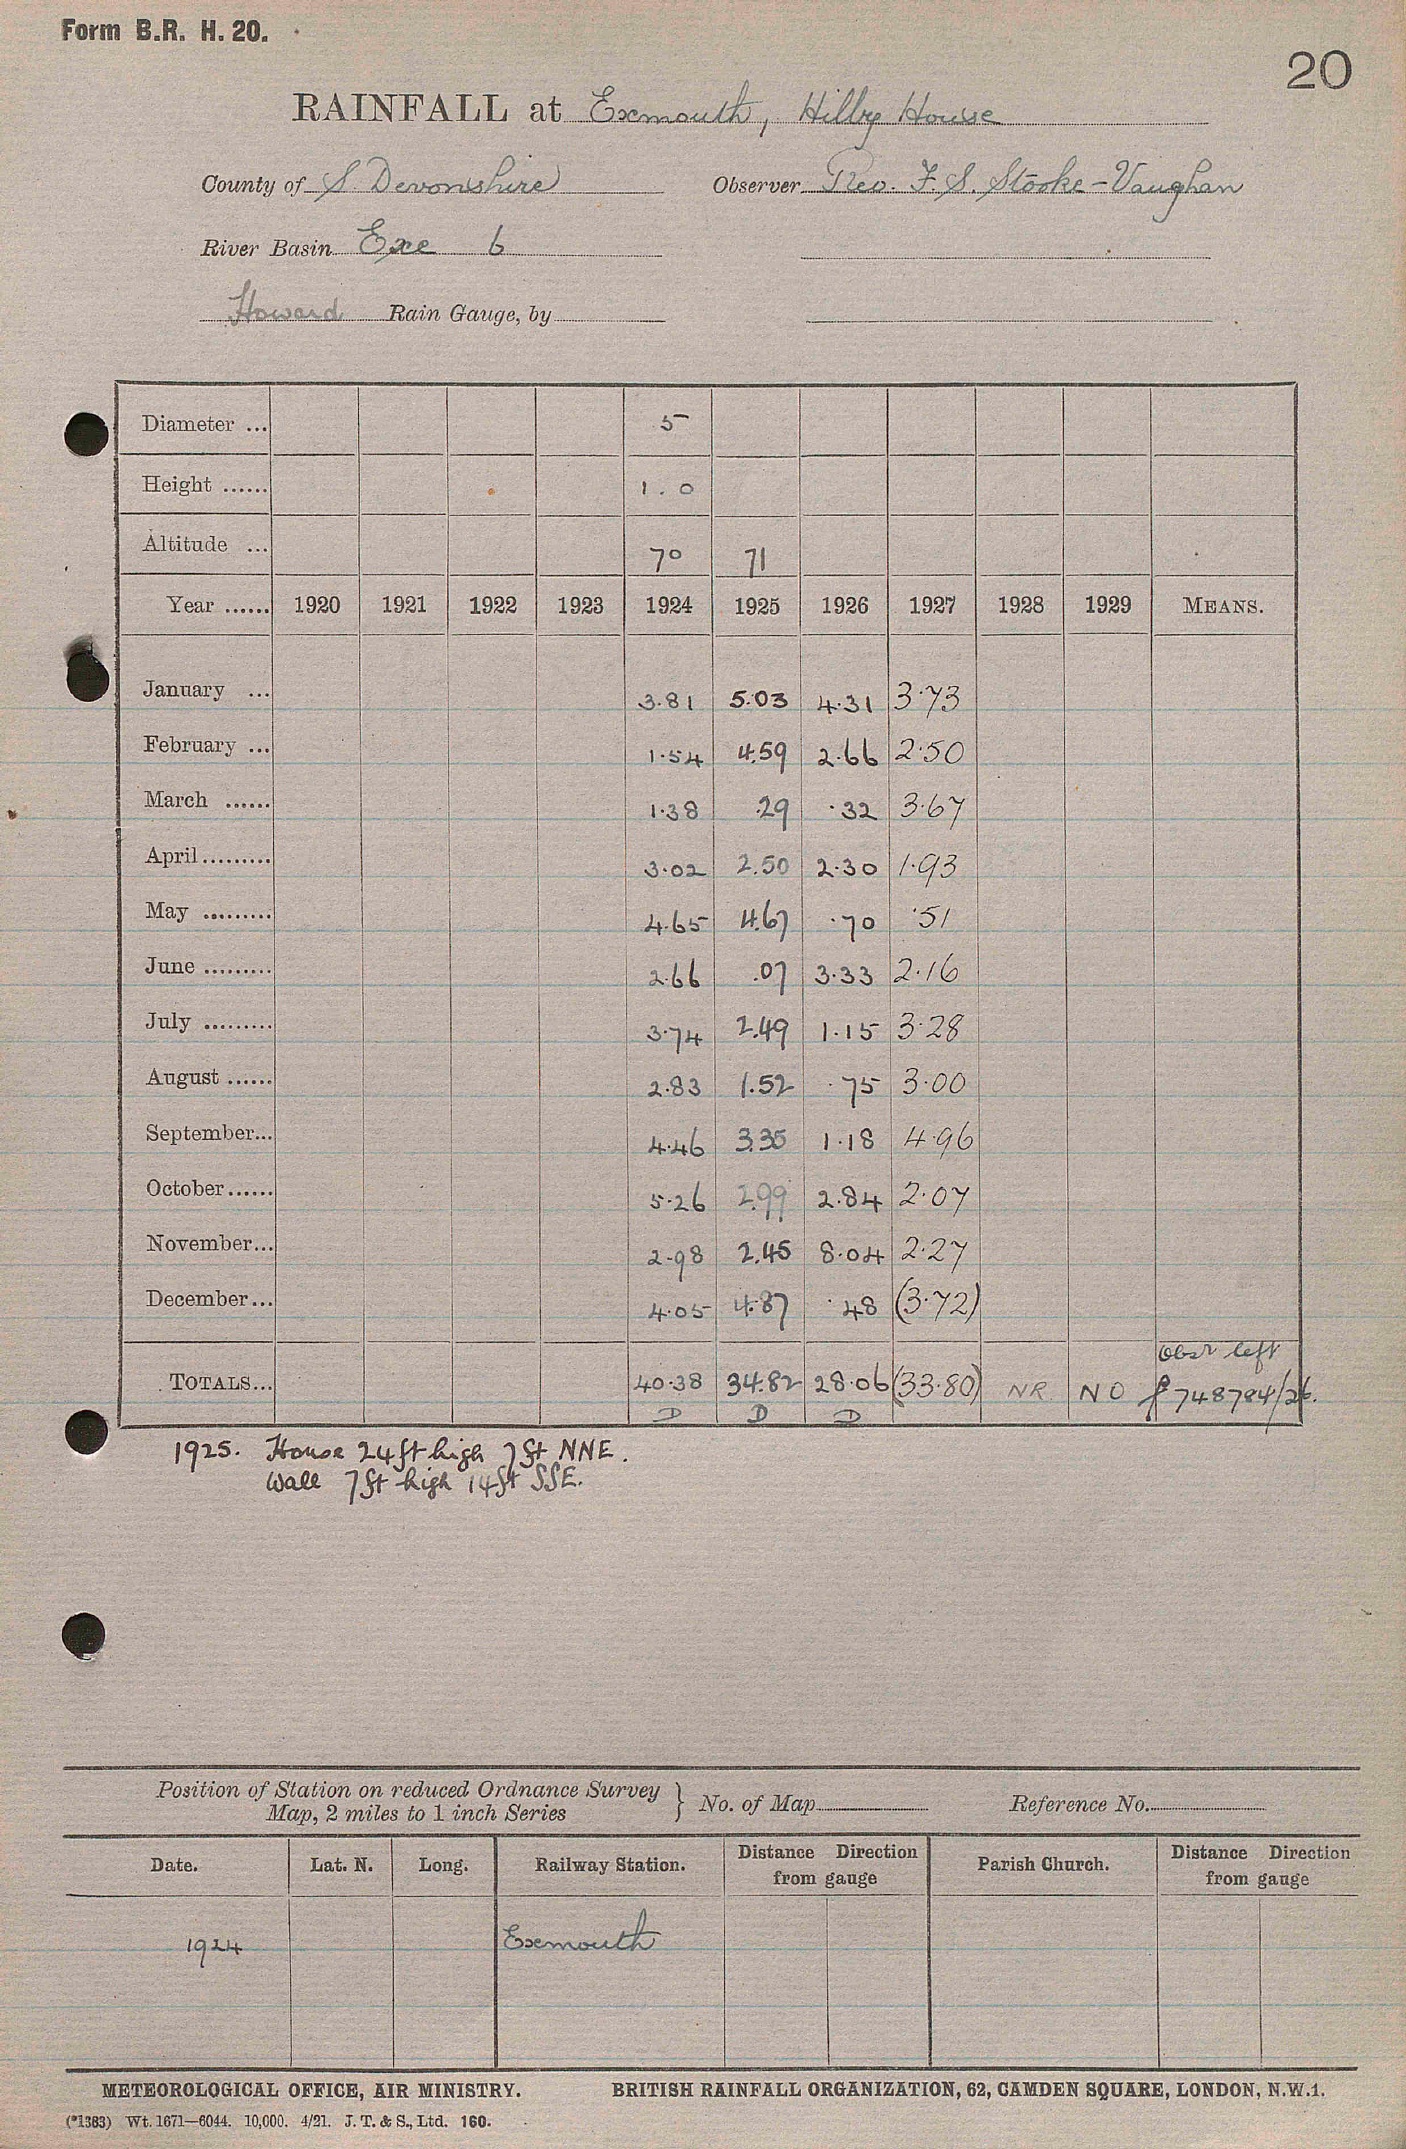 Form B.R. H. 20.
20
RAINFALL at Exmouth, Hilby House
County of S. Devonshire Observer Rev. F. S. Stooke-Vaughan
River Basin Exe 6
Howard Rain Gauge, by
Diameter ... 5
Height ...... 1.0
Altitude ... 70 71
Year ...... 1920 1921 1922 1923 1924 1925 1926 1927 1928 1929 MEANS.
January ... 3.81 5.03 4.31 3.73
February ... 1.54 4.59 2.66 2.50
March ...... 1.38 .29 .32 3.67
April ......... 3.02 2.50 2.30 1.93
May ......... 4.65 4.67 .70 .51
June ......... 2.66 .07 3.33 2.16
July ......... 3.74 2.49 1.15 3.28
August ...... 2.83 1.52 .75 3.00
September... 4.46 3.35 1.18 4.96
October ...... 5.26 2.99 2.84 2.07
November... 2.98 2.45 8.04 2.27
December... 4.05 4.87 .48 (3.72)
Obsr left
TOTALS... 40.38 34.82 28.06 (33.80) NR NO 748784/26.
D D D
1925. House 24ft high 7ft NNE.
Wall 7ft high 14ft SSE.
Position of Station on reduced Ordnance Survey
Map, 2 miles to 1 inch Series } No. of Map Reference No.
Date. Lat. N. Long. Railway Station. Distance Direction from gauge Parish Church. Distance Direction from gauge
1924 Exmouth
METEOROLOGICAL OFFICE, AIR MINISTRY. BRITISH RAINFALL ORGANIZATION, 62, CAMDEN SQUARE, LONDON, N.W.1.
(*1383) Wt. 1671—6044. 10,000. 4/21. J. T. & S., Ltd. 160.